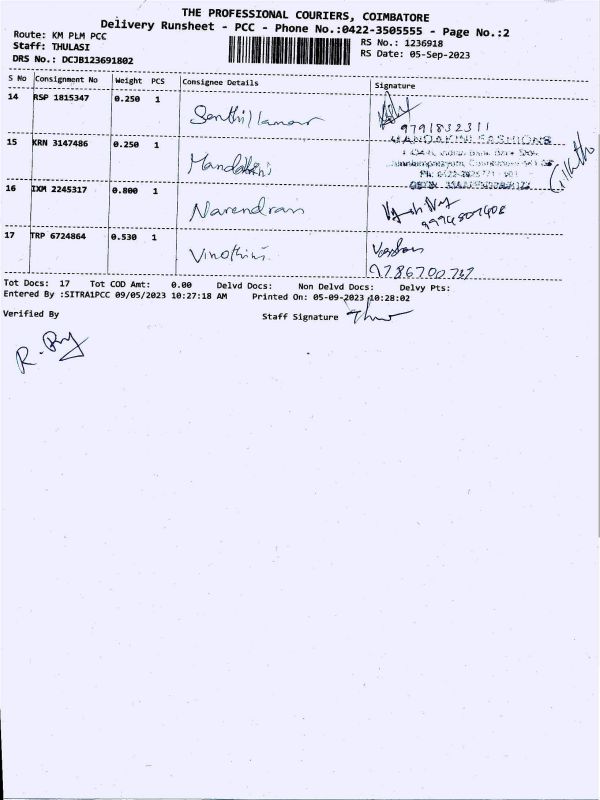 THE PROFESSIONAL COURIERS, COIMBATORE
Delivery Runsheet - PCC - Phone No.:0422-3505555 - Page No.:2
Route: KM PLM PCC
RS No.: 1236918
Staff: THULASI
RS Date: 05-Sep-2023
DRS No.: DCJB123691802
S No Consignment No Weight PCS Consignee Details Signature
14 RSP 1815347 0.250 1
9791832311
15 KRN 3147486 0.250 1 Mandakini
MANDAKINI FASHIONS
16 IXM 2245317 0.800 1 Narendran
17 TRP 6724864 0.530 1 Vinothini
9786700737
Tot Docs: 17 Tot COD Amt: 0.00 Delvd Docs: Non Delvd Docs: Delvy Pts:
Entered By :SITRA1PCC 09/05/2023 10:27:18 AM Printed On: 05-09-2023 10:28:02
Verified By
Staff Signature
R.